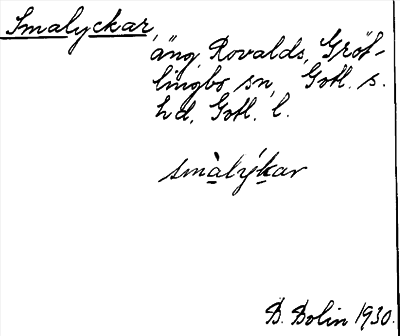 Smalyckar,
äng, Rovalds, Gröt-
lingbo sn, Gotl. s.
hd, Gotl. l.
smàlýkar
D. Bolin 1930.